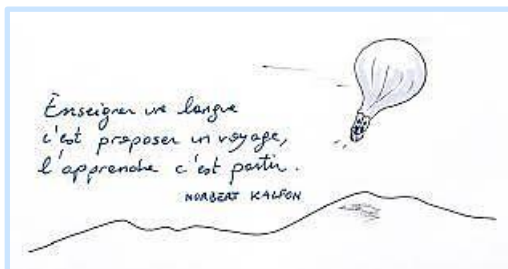 Enseigner une langue
c'est proposer un voyage,
l'apprendre c'est partir.
NORBERT KALFON